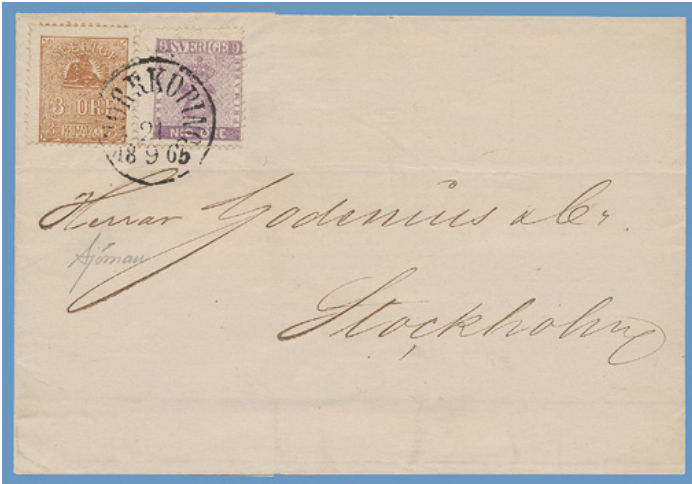 SVERIGE
3 ÖRE
FRIMÄRKE
9 SVERIGE 9
NIO ÖRE
NORRKÖPING
21
18 9 65
Herrar Godenius & Co.
Sjöman
Stockholm